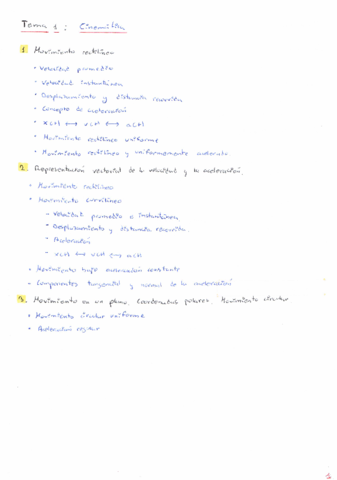 Tema 1: Cinemática
1. Movimiento rectilíneo
• Velocidad promedio
• Velocidad instantánea
• Desplazamiento y distancia recorrida
• Concepto de aceleración
• x(t) ↔ v(t) ↔ a(t)
• Movimiento rectilíneo uniforme
• Movimiento rectilíneo y uniformemente acelerado
2. Representación vectorial de la velocidad y la aceleración.
• Movimiento rectilíneo
• Movimiento curvilíneo
- Velocidad promedio e instantánea
- Desplazamiento y distancia recorrida.
- Aceleración
- x(t) ↔ v(t) ↔ a(t)
• Movimiento bajo aceleración constante
- Componentes tangencial y normal de la aceleración
3. Movimiento en un plano. Coordenadas polares. Movimiento circular
• Movimiento circular uniforme
• Aceleración angular
1